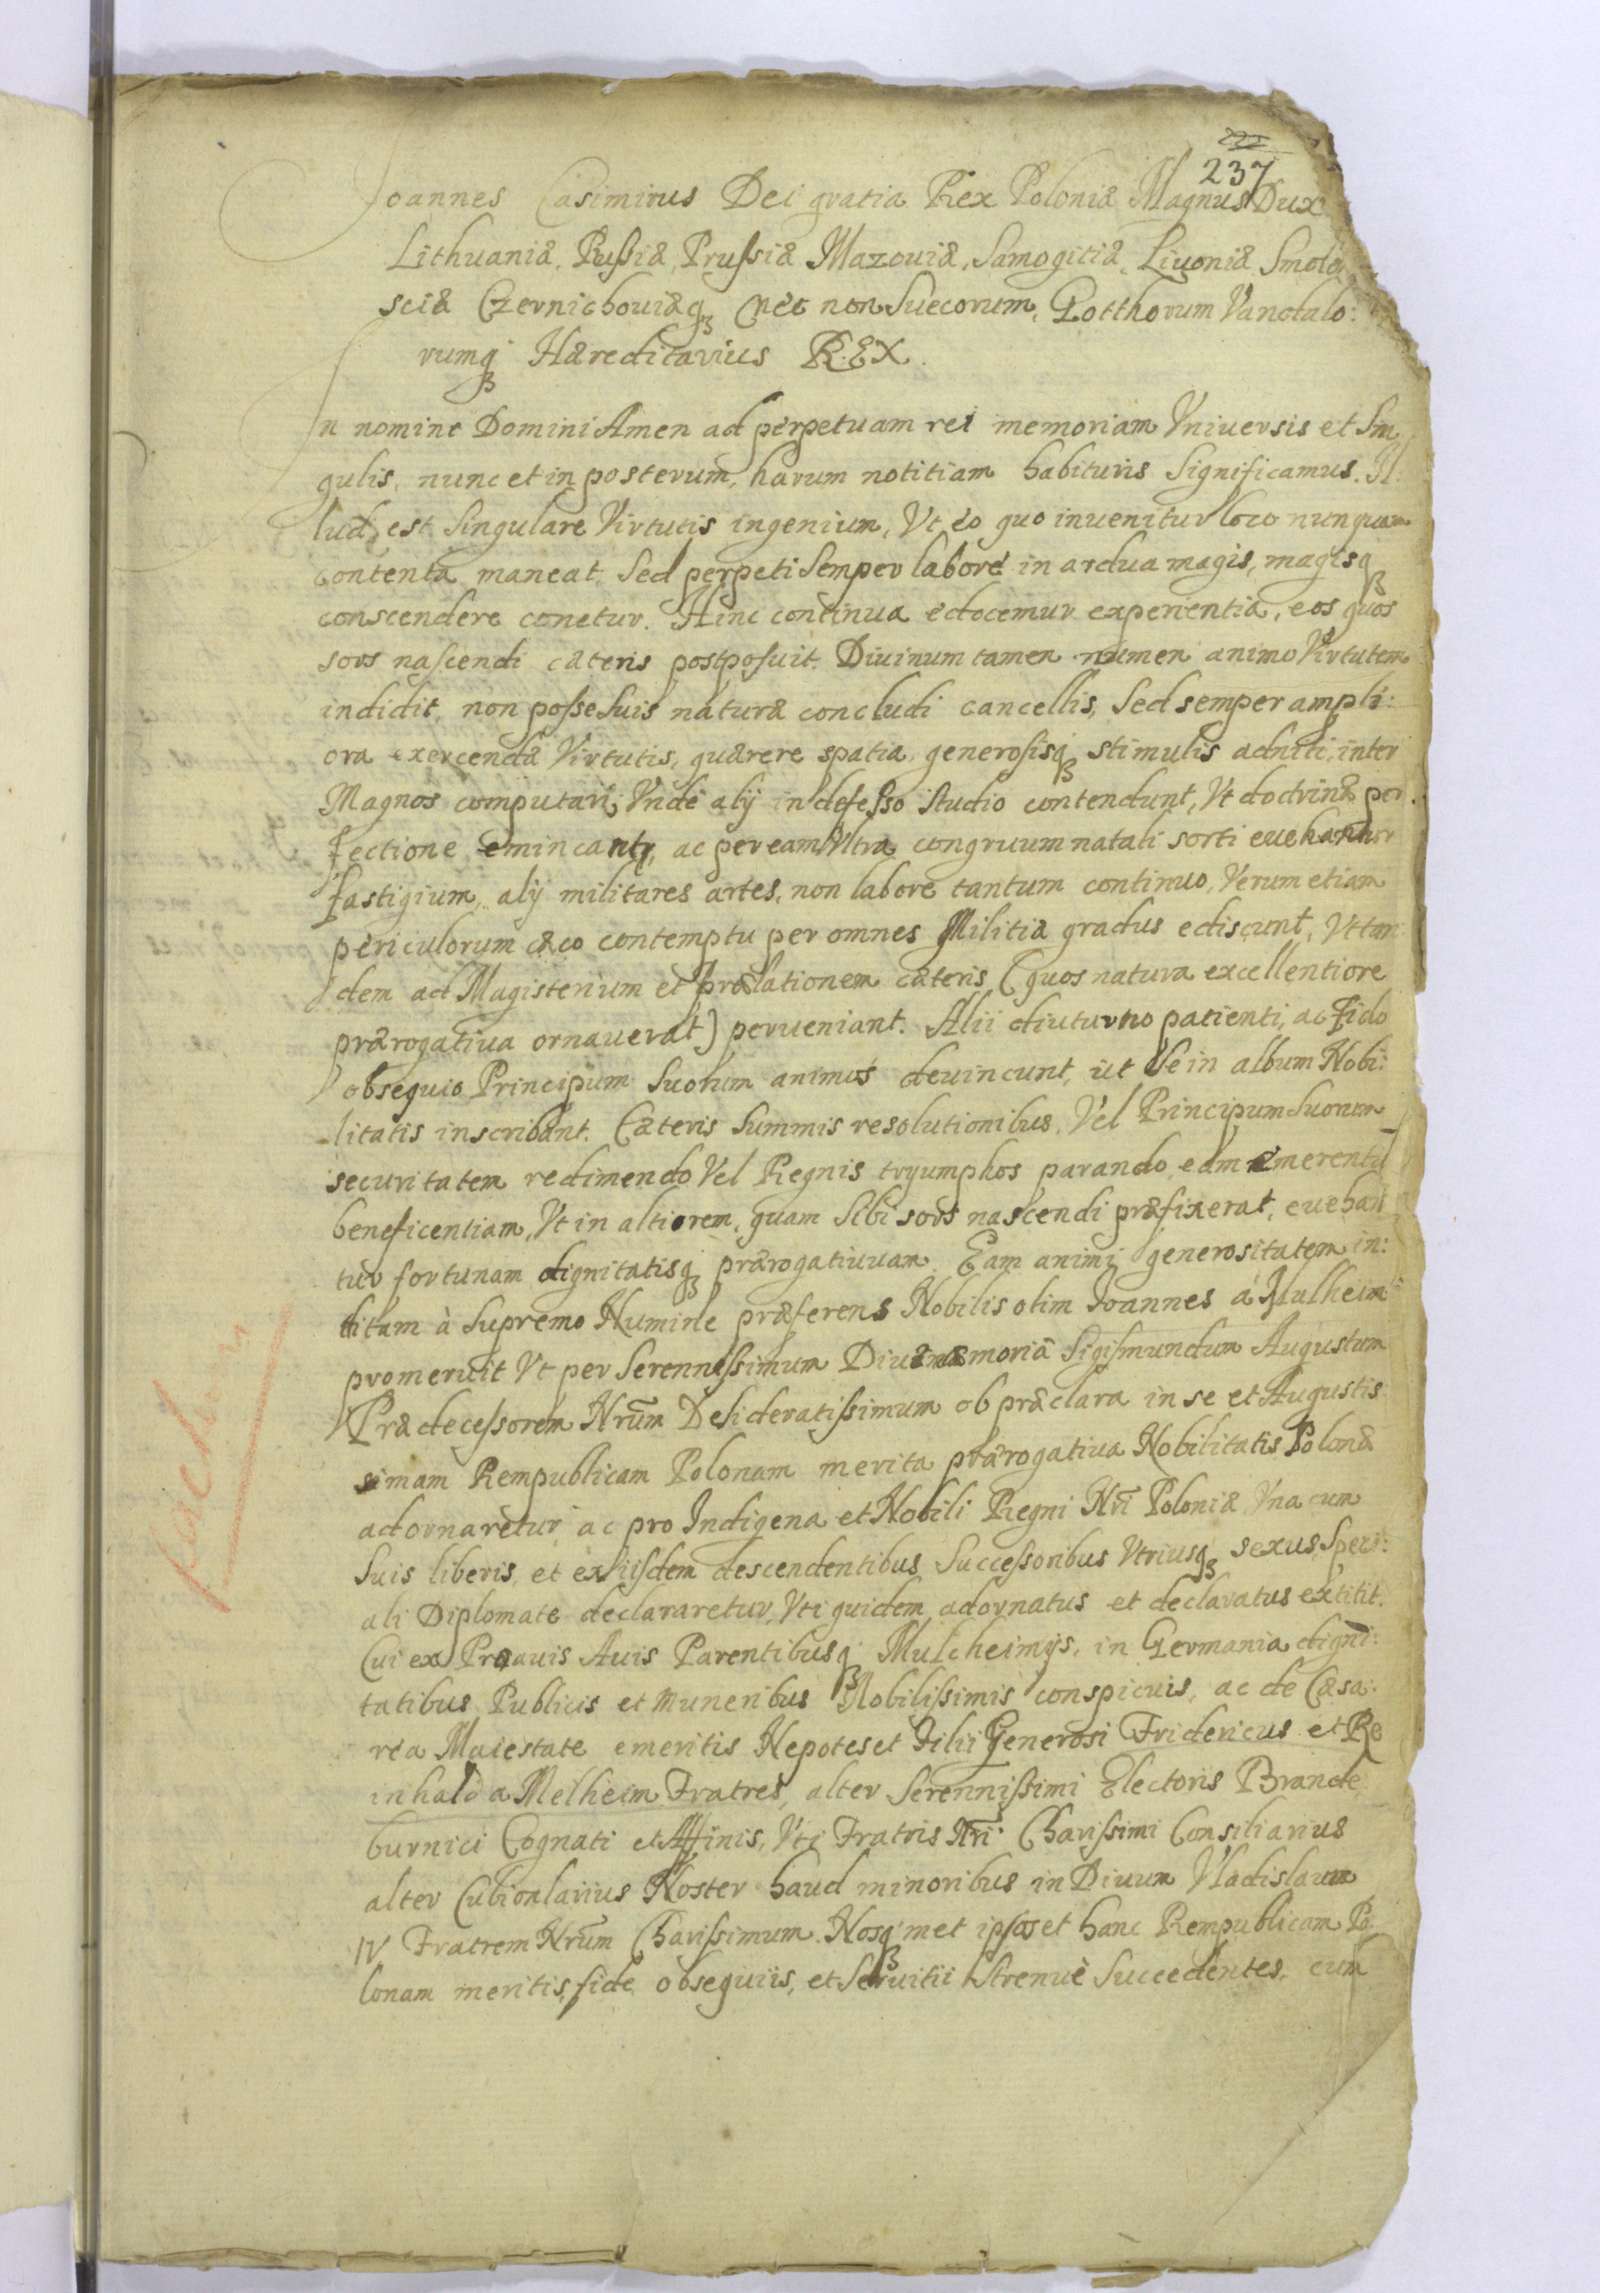 222
237
Joannes Casimirus Dei gratia Rex Poloniæ Magnus Dux
Lithuaniæ, Russiæ, Prussiæ Mazouiæ, Samogitiæ, Liuoniæ Smole
sciæ Czernichouiæq nec non Suecorum, Gotthorum Vandalo:
rumq Hæreditarius REX.
In nomine Domini Amen ad perpetuam rei memoriam Vniuersis et Sin
gulis, nunc et in posterum, harum notitiam habituris Significamus. Il
lud est Singulare Virtutis ingenium, Vt eo quo inuenitur loco nunquam
contenta maneat, Sed perpeti Semper labore in ardua magis, magisq
conscendere conetur. Hinc continua edocemur experientia, eos quos
sors nascendi cæteris postposuit. Diuinum tamen numen animo Virtutem
indidit, non posse Suis naturæ concludi cancellis, Sed semper ampli:
ora exercendæ Virtutis, quærere spatia, generosisq stimulis adniti, inter
Magnos computari, Vnde alij indefesso studio contendunt, Vt doctrinæ per
fectione emineant, ac per eam Vltra congruum natali sorti euehantur
fastigium, alij militares artes, non labore tantum continuo, Verum etiam
periculorum cæco contemptu per omnes Militiæ gradus ediscunt, Vt tan
dem ad Magisterium et prælationem cæteris (quos natura excellentiore
prærogatiua ornauerat) perueniant. Alii diuturno patienti, ac fido
obsequio Principum Suorum animos deuincunt, ut Se in album Nobi:
litatis inscribant. Cæteris Summis resolutionibus, Vel Principum Suorum
securitatem redimendo Vel Regnis tryumphos parando, eam emerentu
beneficentiam, Vt in altiorem, quam Sibi sors nascendi præfixerat, euehan
tur fortunam dignitatisq prærogatiuuam. Eam animi generositatem in:
ditam à Supremo Numine præferens Nobilis olim Joannes à Mulheim
promeruit Vt per Serennissimum Diuæ memoriæ Sigismundum Augustum
Prædecessorem Nrūm Desideratissimum ob præclara in se et Augustis
simam Rempublicam Polonam merita prærogatiua Nobilitatis Polonæ
adornaretur ac pro Indigena et Nobili Regni Nrī Poloniæ Vna cum
Suis liberis, et ex iisdem descendentibus Successoribus Vtriusq sexus, Speci:
ali Diplomate declararetur, Vti quidem adornatus et declaratus extitit.
Cui ex Proauis Auis Parentibusq Mulcheimijs, in Germania digni:
tatibus Publicis et muneribus Nobilissimis conspicuis, ac de Cæsa:
rea Maiestate emeritis Nepotes et Filii Generosi Fridericus et Re
inhald a Melheim Fratres, alter Serennissimi Electoris Brande
burnici Cognati et Affinis, Vti Fratris Nrī Charissimi Consiliarius
alter Cubicularius Noster haud minoribus in Diuum Vladislaum
IV Fratrem Nrūm Charissimum. Nosq met ipsos et hanc Rempublicam Po
lonam meritis, fide, obsequiis, et Seruitii Strenuè Succedentes, cum